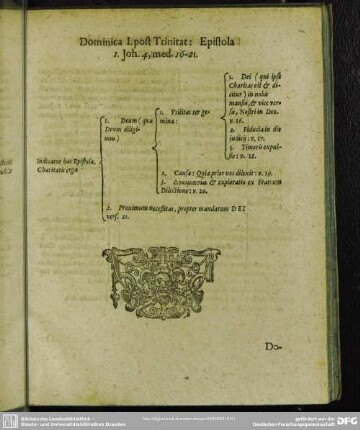 Dominica I. post Trinitat: Epistola
1. Joh. 4, med. 16-21.
Indicatur hac Epistola,
Charitatis erga
1. Deum (qua
Deum diligi-
mus)
1. Vtilitas ter ge-
mina:
1. Dei (qui ipsa
Charitas est &
di-
citur) in nobis
mansio, & vice ver-
sa, Nostri in Deo.
v. 16.
2. Fiducia in die
judicii: v. 17.
3. Timoris expul-
sio: v. 18.
2. Causa: Quia prior nos dilexit: v. 19.
3. & exploratio ex Fratrum
Dilectione: v. 20.
2. Proximum necessitas, propter mandatum DEI
vers. 21.
Do-
Sächsische Landesbibliothek -
Staats- und Universitätsbibliothek Dresden
gefördert von der
Deutschen Forschungsgemeinschaft
DFG